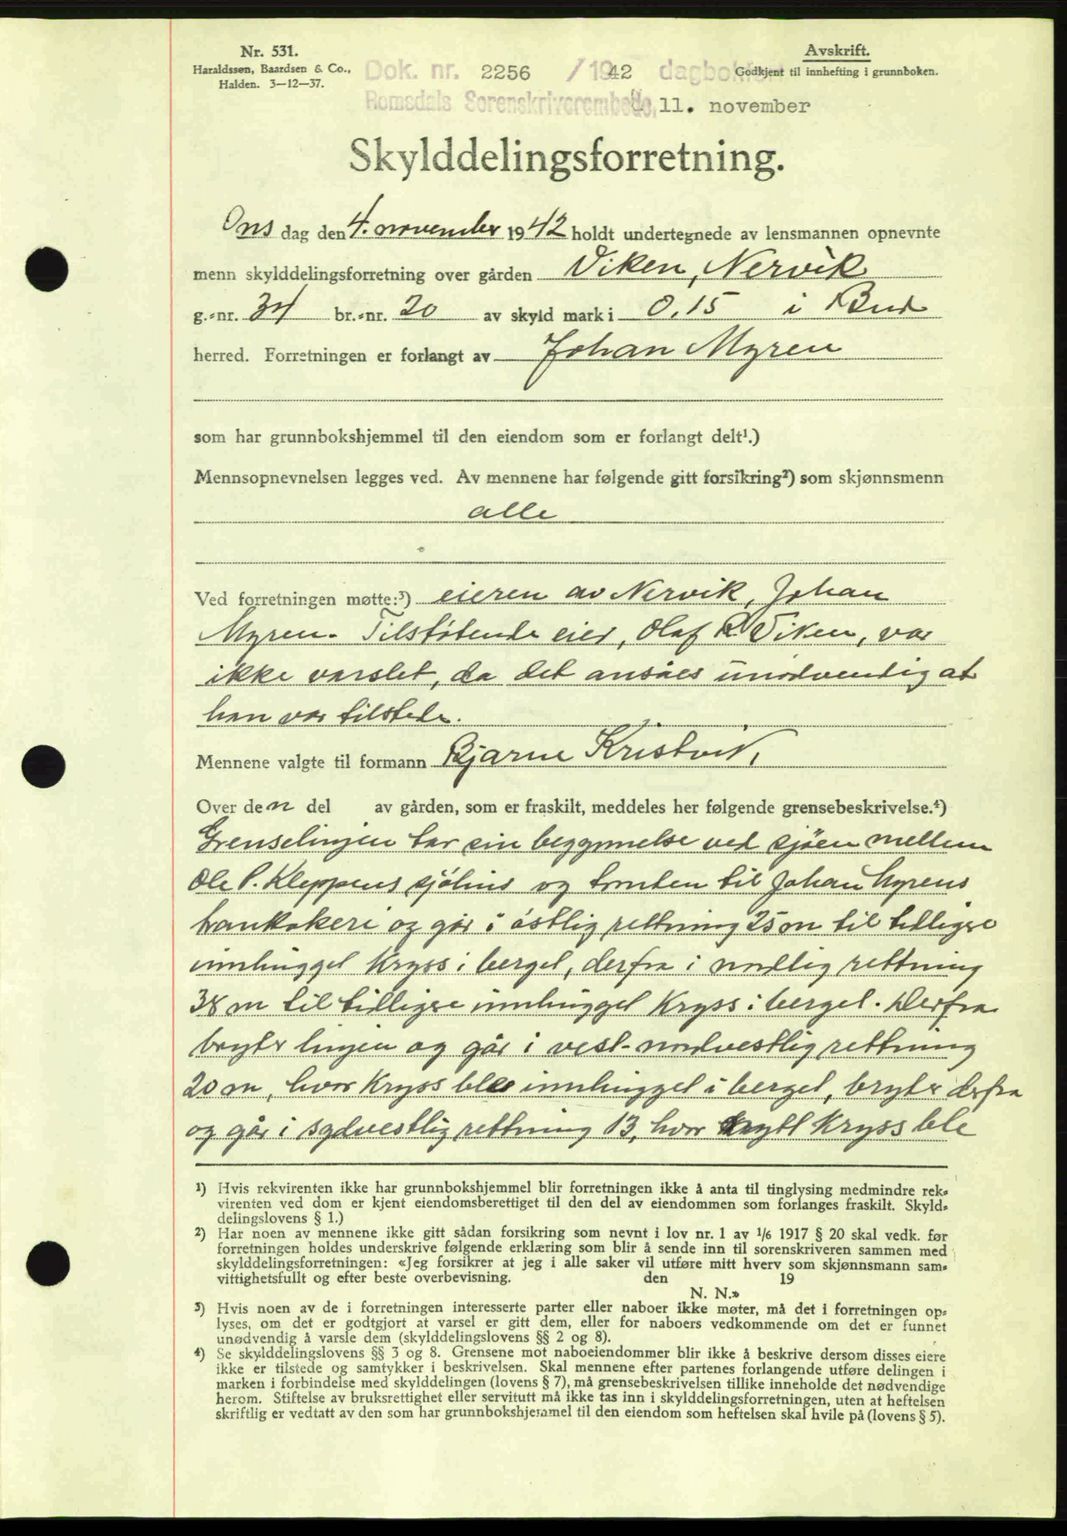 Nr. 531.
Haraldssen, Baardsen & Co.,
Halden. 3—12—37.
Avskrift.
Godkjent til innhefting i grunnboken.
Dok. nr. 2256 /1942 dagbokført
Romsdals Sorenskriverembede, 11. november
Skylddelingsforretning.
Ons dag den 4. november 1942 holdt undertegnede av lensmannen opnevnte
menn skylddelingsforretning over gården Viken, Nervik
g.-nr. 34 br.-nr. 20 av skyld mark i 0,15 i Bud
herred. Forretningen er forlangt av Johan Myren
som har grunnbokshjemmel til den eiendom som er forlangt delt¹.)
Mennsopnevnelsen legges ved. Av mennene har følgende gitt forsikring²) som skjønnsmenn
alle
Ved forretningen møtte:³) eieren av Nervik, Johan
Myren. Tilstøtende eier, Olaf R. Viken, var
ikke varslet, da det ansåes unødvendig at
han var tilstede.
Mennene valgte til formann Bjarne Kristvik,
Over den del av gården, som er fraskilt, meddeles her følgende grensebeskrivelse.⁴)
Grenselinjen tar sin begynnelse ved sjøen mellem
Ole P. Kleppens sjøhus og tomten til Johan Myrens
trankokeri og går i østlig rettning 25 m til tidligere
innhugget kryss i berget, derfra i nordlig rettning
38 m til tidligere innhugget kryss i berget. Derfra
bryter linjen og går i vest-nordvestlig rettning
20 m, hvor kryss ble innhugget i berget, bryter derfra
og går i sydvestlig rettning 13, hvor nytt kryss ble
¹) Hvis rekvirenten ikke har grunnbokshjemmel blir forretningen ikke å anta til tinglysing medmindre rek-
virenten ved dom er kjent eiendomsberettiget til den del av eiendommen som forlanges fraskilt. Skyld-
delingslovens § 1.)
²) Har noen av mennene ikke gitt sådan forsikring som nevnt i lov nr. 1 av 1/6 1917 § 20 skal vedk. før
forretningen holdes underskrive følgende erklæring som blir å sende inn til sorenskriveren sammen med
skylddelingsforretningen: «Jeg forsikrer at jeg i alle saker vil utføre mitt hverv som skjønnsmann sam-
vittighetsfullt og efter beste overbevisning. den 19
N. N.»
³) Hvis noen av de i forretningen interesserte parter eller naboer ikke møter, må det i forretningen op-
lyses, om det er godtgjort at varsel er gitt dem, eller for naboers vedkommende om det er funnet
unødvendig å varsle dem (skylddelingslovens §§ 2 og 8).
⁴) Se skylddelingslovens §§ 3 og 8. Grensene mot naboeiendommer blir ikke å beskrive dersom disses eiere
ikke er tilstede og samtykker i beskrivelsen. Skal mennene efter partenes forlangende utføre delingen i
marken i forbindelse med skylddelingen (lovens § 7), må grensebeskrivelsen tillike inneholde det nødvendige
herom. Stiftelse av bruksrettighet eller servitutt må ikke tas inn i skylddelingsforretningen, uten at heftelsen
skriftlig er vedtatt av den som har grunnbokshjemmel til den eiendom som heftelsen skal hvile på (lovens § 5).